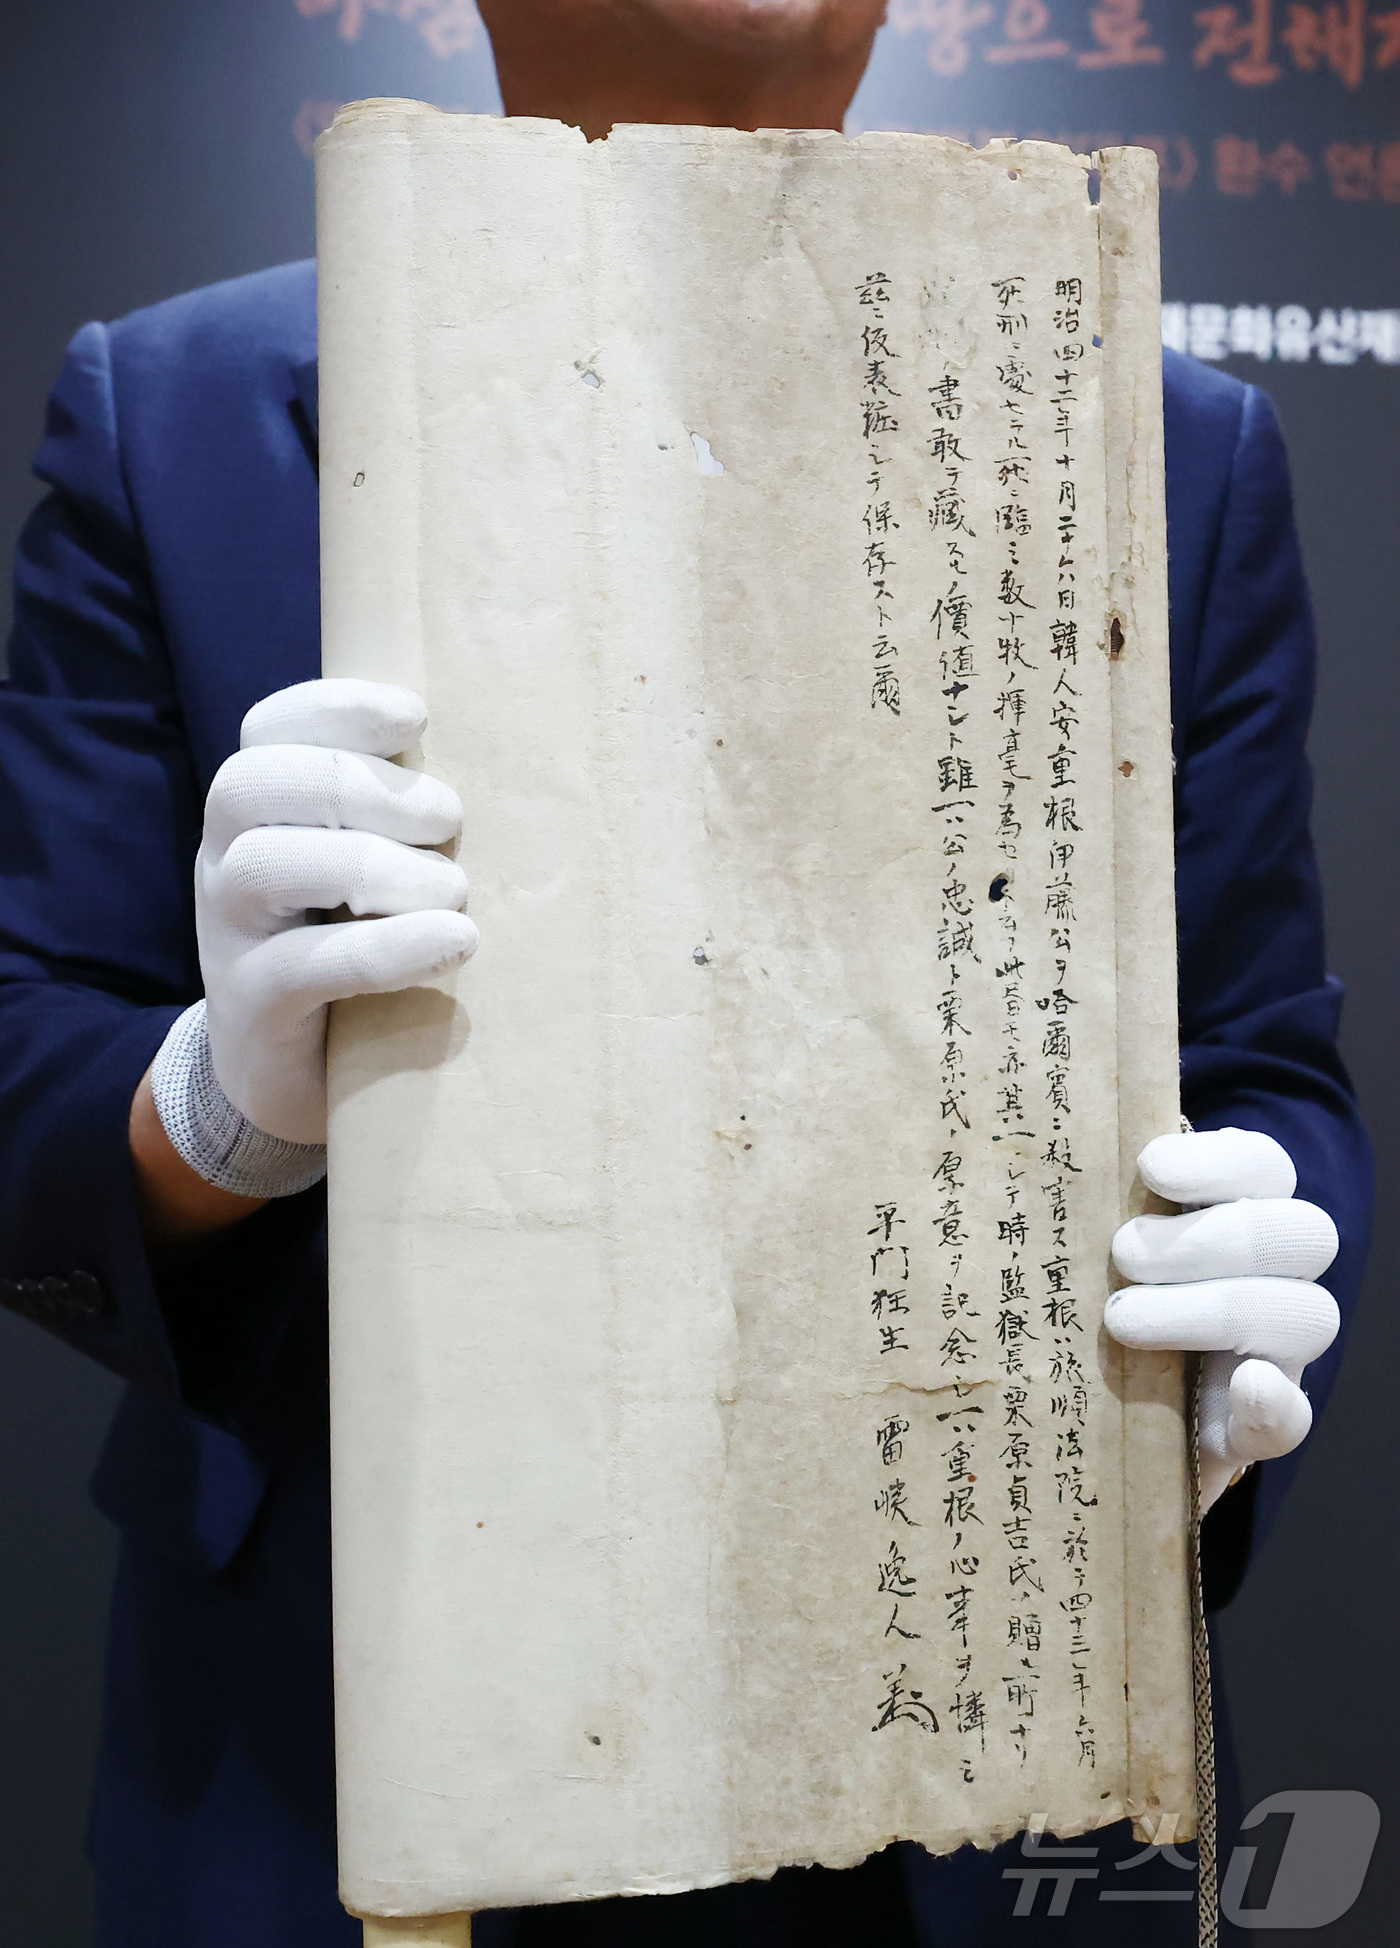 땅으로 전해
환수 언론
문화유산
明治四十二年十月二十六日韓人安重根伊藤公ヲ哈爾賓ニ殺害ス重根ハ旅順法院ニ於テ四十三年六月
死刑ニ處セラル死ニ臨ミ数十枚ノ揮毫ヲ為セ 此書モ亦其一ニシテ時ノ監獄長栗原貞吉氏ノ贈ル所ナリ
書敢テ藏スルノ價値ナシト雖一ハ公ノ忠誠ト栗原氏ノ厚意ヲ記念シ一ハ重根ノ心事ヲ憐ミ
茲ニ仮表粧シテ保存スト云爾
平門狂生
雷峽逸人
뉴스1